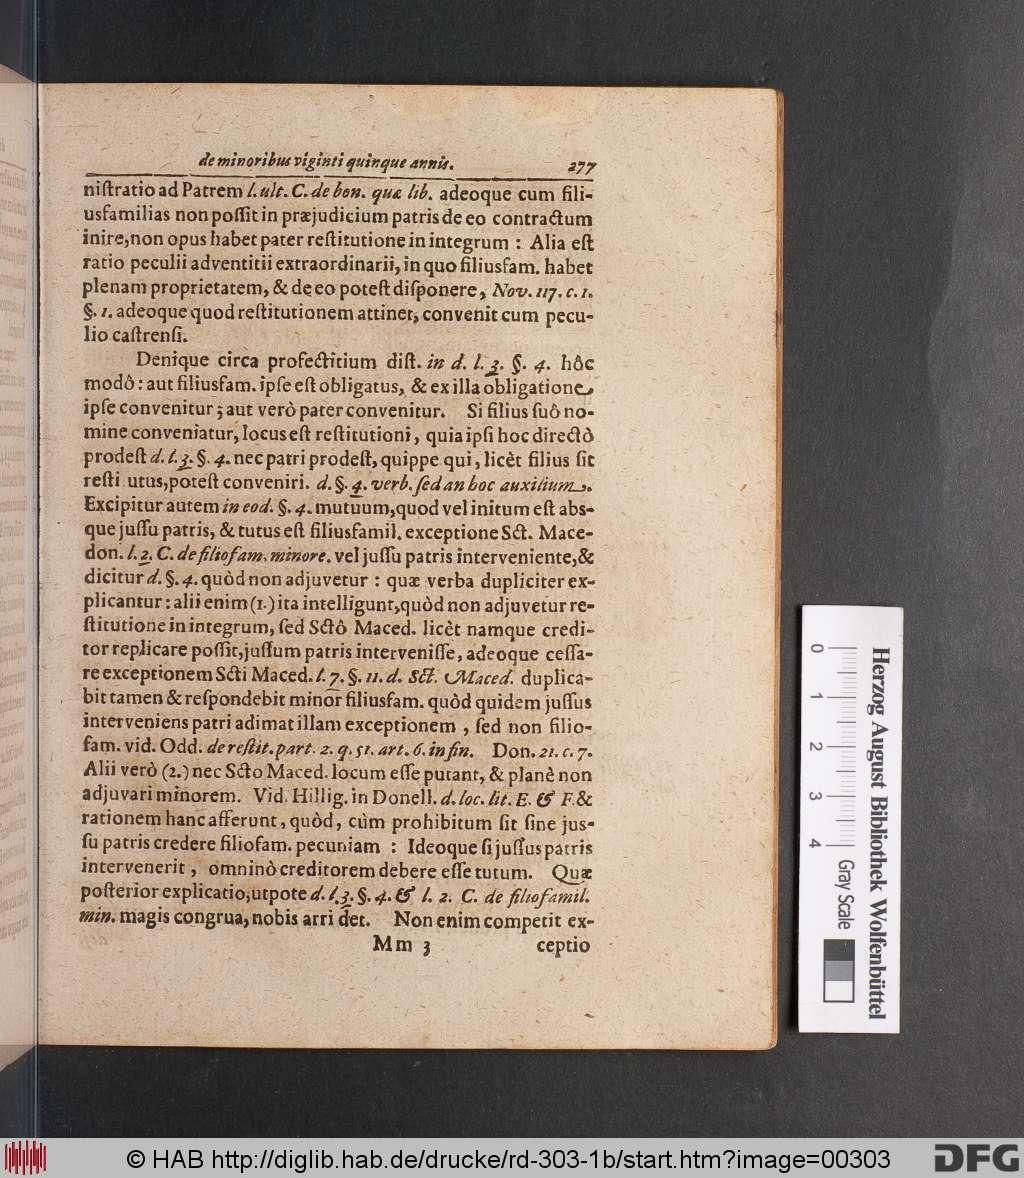 de minoribus viginti quinque annis. 277
niſtratio ad Patrem l. ult. C. de bon. quæ lib. adeoque cum fili-
usfamilias non poſſit in præjudicium patris de eo contractum
inire, non opus habet pater reſtitutione in integrum : Alia eſt
ratio peculii adventitii extraordinarii, in quo filiusfam. habet
plenam proprietatem, & de eo poteſt diſponere, Nov. 117. c. 1.
§. 1. adeoque quod reſtitutionem attinet, convenit cum pecu-
lio caſtrenſi.
Denique circa profectitium diſt. in d. l. 3. §. 4. hôc
modô: aut filiusfam. ipſe eſt obligatus, & ex illa obligatione
ipſe convenitur; aut verò pater convenitur. Si filius ſuô no-
mine conveniatur, locus eſt reſtitutioni, quia ipſi hoc directò
prodeſt d. l. 3. §. 4. nec patri prodeſt, quippe qui, licèt filius ſit
reſti utus, poteſt conveniri. d. §. 4. verb. ſed an hoc auxilium.
Excipitur autem in eod. §. 4. mutuum, quod vel initum eſt abs-
que juſſu patris, & tutus eſt filiusfamil. exceptione Sct. Mace-
don. l. 2. C. de filiofam. minore. vel juſſu patris interveniente, &
dicitur d. §. 4. quòd non adjuvetur : quæ verba dupliciter ex-
plicantur: alii enim (1.) ita intelligunt, quòd non adjuvetur re-
ſtitutione in integrum, ſed Sctô Maced. licèt namque credi-
tor replicare poſſit, juſſum patris interveniſſe, adeoque ceſſa-
re exceptionem Scti Maced. l. 7. §. 11. d. Sct. Maced. duplica-
bit tamen & reſpondebit minor filiusfam. quòd quidem juſſus
interveniens patri adimat illam exceptionem, ſed non filio-
fam. vid. Odd. de reſtit. part. 2. q. 51. art. 6. in fin. Don. 21. c. 7.
Alii verò (2.) nec Scto Maced. locum eſſe putant, & planè non
adjuvari minorem. Vid. Hillig. in Donell. d. loc. lit. E. & F. &
rationem hanc afferunt, quòd, cùm prohibitum ſit ſine jus-
ſu patris credere filiofam. pecuniam : Ideoque ſi juſſus patris
intervenerit, omninò creditorem debere eſſe tutum. Quæ
poſterior explicatio, utpote d. l. 3. §. 4. & l. 2. C. de filiofamil.
min. magis congrua, nobis arri det. Non enim competit ex-
Mm 3 ceptio
0 1 2 3 4
Herzog August Bibliothek Wolfenbüttel
Gray Scale
© HAB http://diglib.hab.de/drucke/rd-303-1b/start.htm?image=00303
DFG